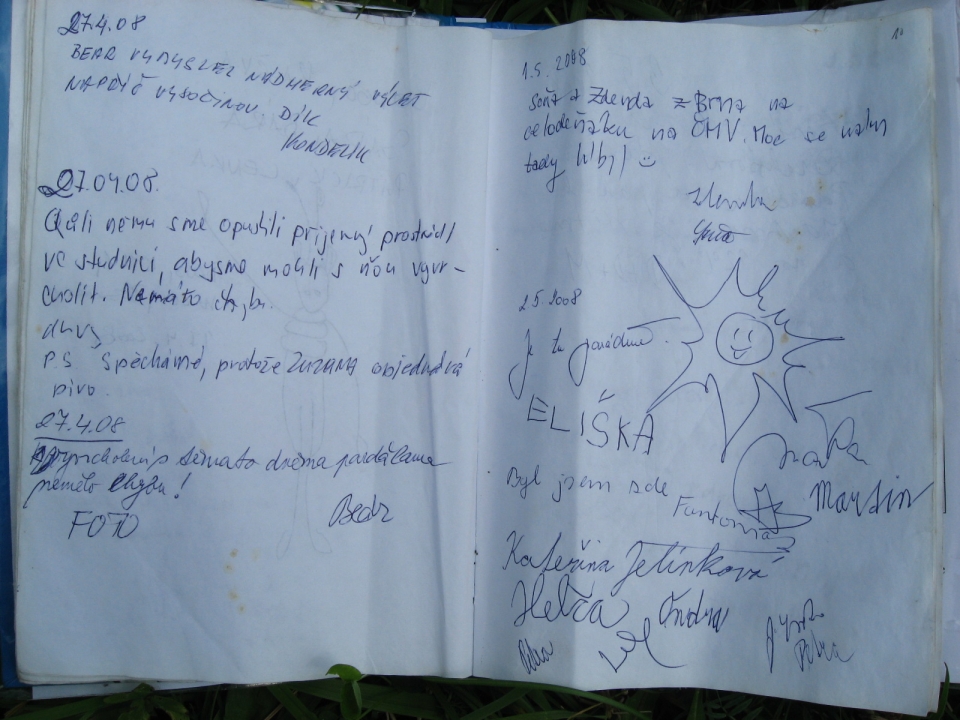 27.4.08
BEAR VYMYSLEL NÁDHERNÝ VÝLET
NAPŘÍČ VYSOČINOU. DÍK
KONDELÍK
27.04.08.
sme opustili příjemný prostředí
ve studnici, abysme mohli s ňou vyvr-
cholit. Nemáto chybu.
P.S Spěcháme, protože ZUZANA objednává
pivo.
27.4.08
s těmato dvěma
nemělo chybu!
FOTO
10
1.5. 2008
Soňa a Zdenda z Brna na
celodeňáku na ČMV. Moc se nám
tady líbí!
Zdenda
Soňa
2.5 2008
Je tu parádně.
ELIŠKA
Byl jsem zde Fantomas
Martin
Kateřina Jelínková
Helča Ondra
Petra